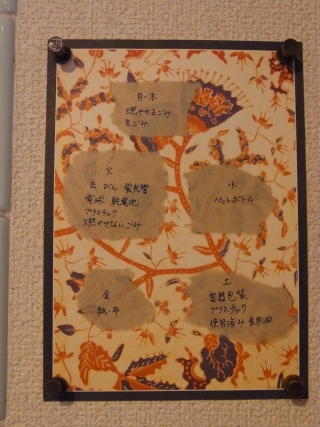 月・木
燃やせるごみ
生ごみ
火
缶 びん 蛍光管
電球 乾電池
プラスチック
燃やせないごみ
水
ペットボトル
金
紙・布
土
容器包装
プラスチック
使用済み食用油